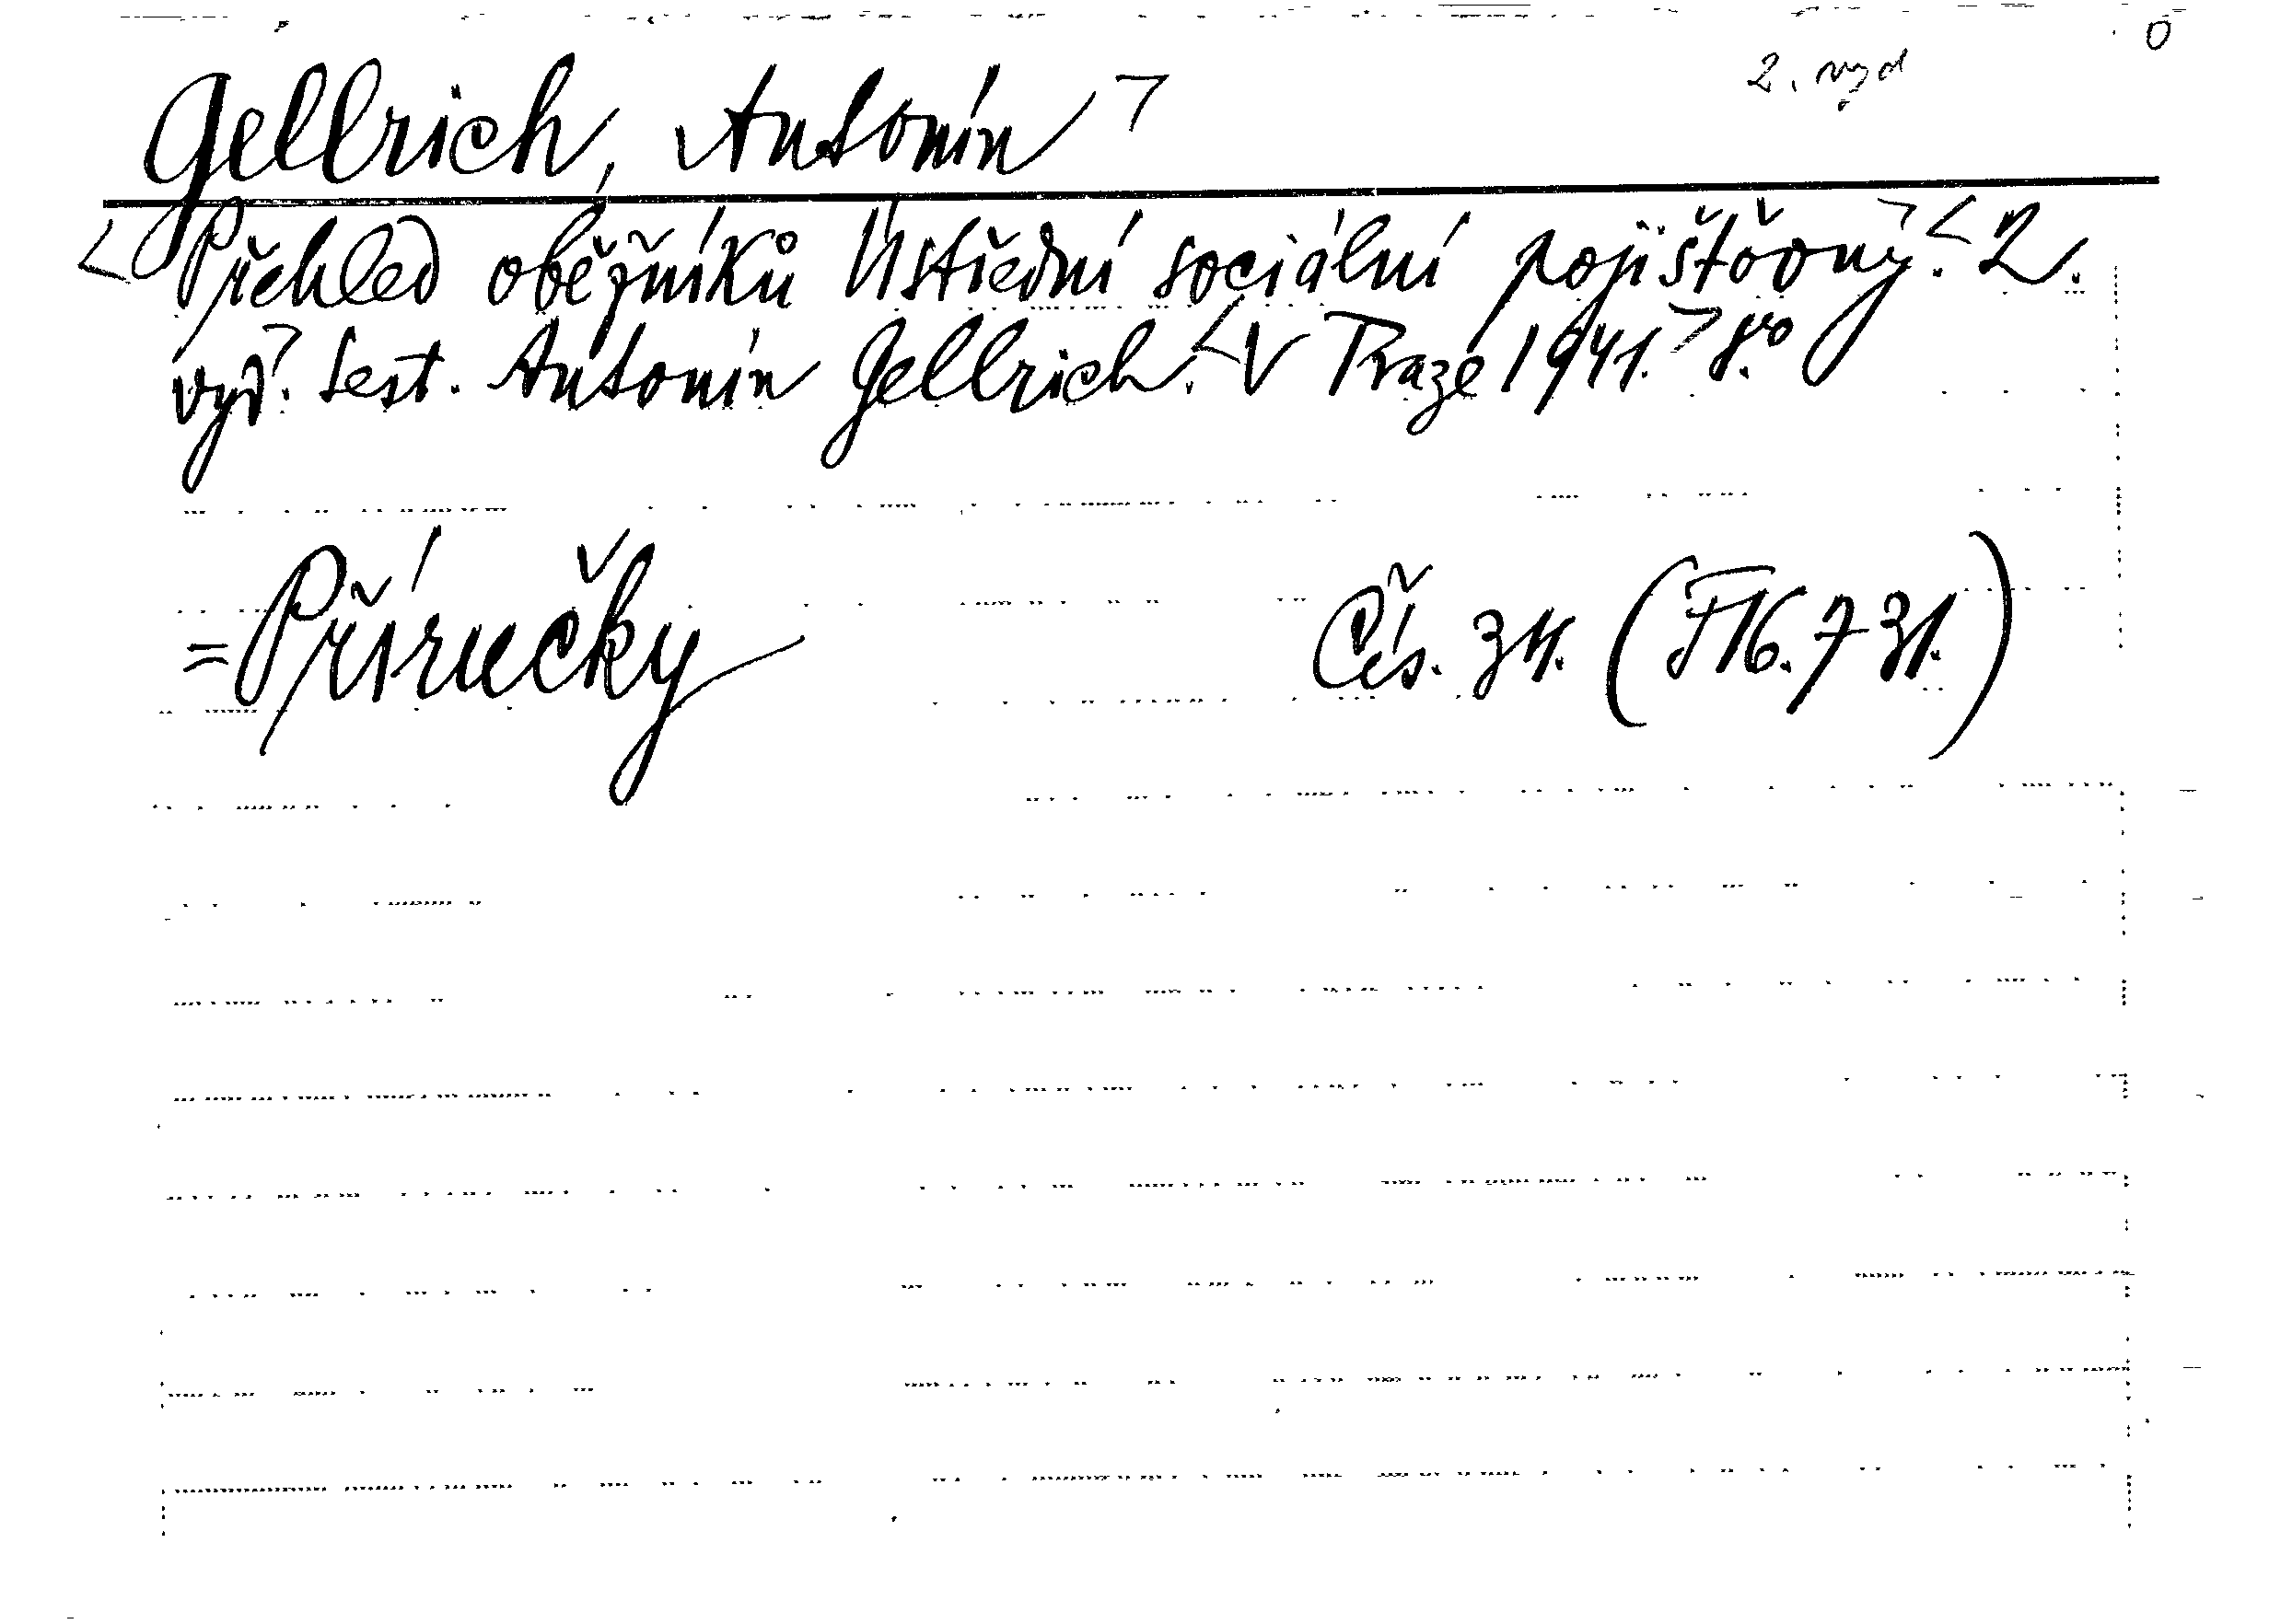 2. vyd
Gellrich, Antonín
Přehled oběžníků Ústřední sociální pojišťovny. 2.
vyd. Sest. Antonín Gellrich. V Praze 1941. 8°
= Příručky Čís. 34. (F16.731.)